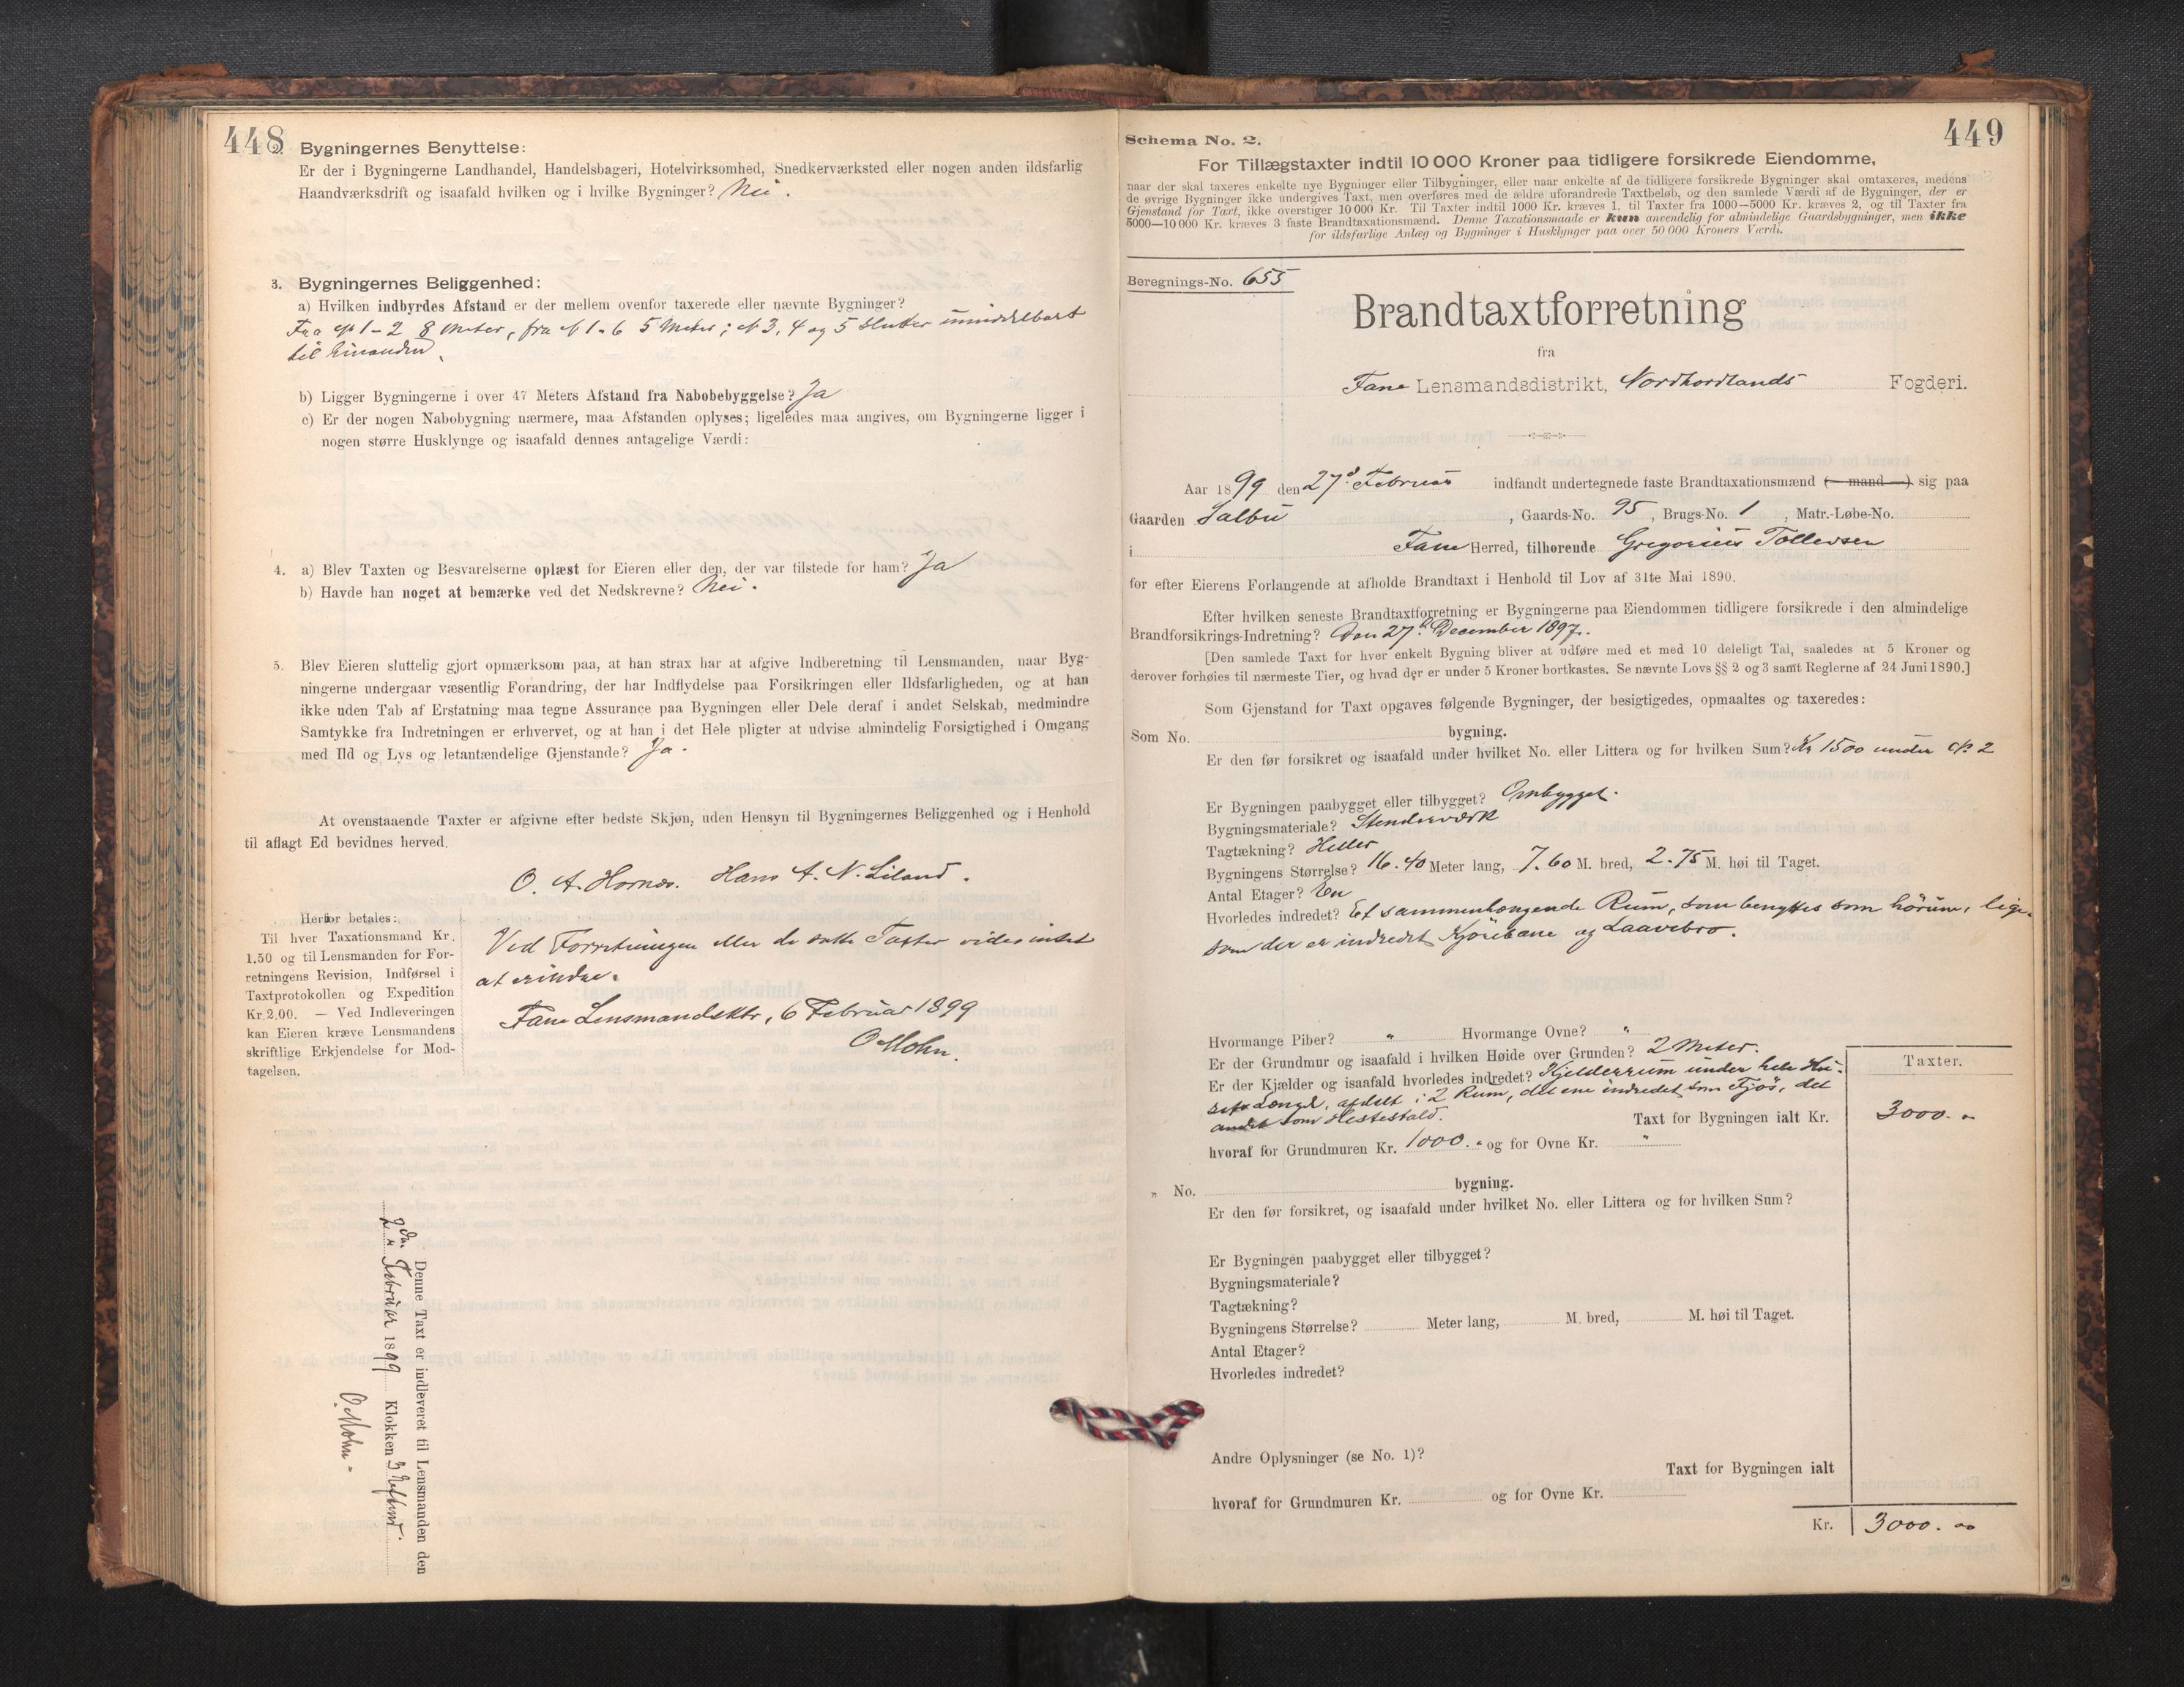 448
2. Bygningernes Benyttelse:
Er der i Bygningerne Landhandel, Handelsbageri, Hotelvirksomhed, Snedkerværksted eller nogen anden ildsfarlig
Haandværksdrift og isaafald hvilken og i hvilke Bygninger? Nei.
3. Bygningernes Beliggenhed:
a) Hvilken indbyrdes Afstand er der mellem ovenfor taxerede eller nævnte Bygninger?
Fra № 1-2 8 Meter, fra № 1-6 5 Meter; № 3, 4 og 5 slutter umiddelbart
til hinanden.
b) Ligger Bygningerne i over 47 Meters Afstand fra Nabobebyggelse? Ja
c) Er der nogen Nabobygning nærmere, maa Afstanden oplyses; ligeledes maa angives, om Bygningerne ligger i
nogen større Husklynge og isaafald dennes antagelige Værdi:
4. a) Blev Taxten og Besvarelserne oplæst for Eieren eller den, der var tilstede for ham? Ja
b) Havde han noget at bemærke ved det Nedskrevne? Nei.
5. Blev Eieren sluttelig gjort opmærksom paa, at han strax har at afgive Indberetning til Lensmanden, naar Byg-
ningerne undergaar væsentlig Forandring, der har Indflydelse paa Forsikringen eller Ildsfarligheden, og at han
ikke uden Tab af Erstatning maa tegne Assurance paa Bygningen eller Dele deraf i andet Selskab, medmindre
Samtykke fra Indretningen er erhvervet, og at han i det Hele pligter at udvise almindelig Forsigtighed i Omgang
med Ild og Lys og letantændelige Gjenstande? Ja.
At ovenstaaende Taxter er afgivne efter bedste Skjøn, uden Hensyn til Bygningernes Beliggenhed og i Henhold
til aflagt Ed bevidnes herved.
O. A. Hornæs. Hans A. N. Liland.
Herfor betales:
Til hver Taxationsmand Kr.
1.50 og til Lensmanden for For-
retningens Revision, Indførsel i
Taxtprotokollen og Expedition
Kr. 2,00. — Ved Indleveringen
kan Eieren kræve Lensmandens
skriftlige Erkjendelse for Mod-
tagelsen.
Ved Forretningen eller de satte Taxter vides intet
at erindre.
Fane Lensmandsktr, 6 Februar 1899
O Mohn.
Denne Taxt er indleveret til Lensmanden den
2den Februar 1899 Klokken 3 Eftmd.
O. Mohn.
449
Schema No. 2.
For Tillægstaxter indtil 10 000 Kroner paa tidligere forsikrede Eiendomme,
naar der skal taxeres enkelte nye Bygninger eller Tilbygninger, eller naar enkelte af de tidligere forsikrede Bygninger skal omtaxeres, medens
de øvrige Bygninger ikke undergives Taxt, men overføres med de ældre uforandrede Taxtbeløb, og den samlede Værdi af de Bygninger, der er
Gjenstand for Taxt, ikke overstiger 10 000 Kr. Til Taxter indtil 1000 Kr. kræves 1, til Taxter fra 1000—5000 Kr. kræves 2, og til Taxter fra
5000—10 000 Kr. kræves 3 faste Brandtaxationsmænd. Denne Taxationsmaade er kun anvendelig for almindelige Gaardsbygninger, men ikke
for ildsfarlige Anlæg og Bygninger i Husklynger paa over 50 000 Kroners Værdi.
Beregnings-No. 655
Brandtaxtforretning
fra
Fane Lensmandsdistrikt, Nordhordlands Fogderi.
Aar 1899 den 27d. Februar indfandt undertegnede faste Brandtaxationsmænd (— mand —) sig paa
Gaarden Salbu, Gaards-No. 95, Brugs-No. 1, Matr.-Løbe-No.
i Fane Herred, tilhørende Gregorius Tollevsen
for efter Eierens Forlangende at afholde Brandtaxt i Henhold til Lov af 31te Mai 1890.
Efter hvilken seneste Brandtaxtforretning er Bygningerne paa Eiendommen tidligere forsikrede i den almindelige
Brandforsikrings-Indretning? Den 27d. December 1897.
[Den samlede Taxt for hver enkelt Bygning bliver at udføre med et med 10 deleligt Tal, saaledes at 5 Kroner og
derover forhøies til nærmeste Tier, og hvad der er under 5 Kroner bortkastes. Se nævnte Lovs §§ 2 og 3 samt Reglerne af 24 Juni 1890.]
Som Gjenstand for Taxt opgaves følgende Bygninger, der besigtigedes, opmaaltes og taxeredes:
Som No. bygning.
Er den før forsikret og isaafald under hvilket No. eller Littera og for hvilken Sum? Kr 1500 under № 2
Er Bygningen paabygget eller tilbygget? Ombygget.
Bygningsmateriale? Stenderværk
Tagtækning? Heller
Bygningens Størrelse? 16.40 Meter lang, 7.60 M. bred, 2.75 M. høi til Taget.
Antal Etager? En
Hvorledes indredet? Et sammenhængende Rum, som benyttes som hörum, lige-
som der er indredet Kjörebane og Laavebro.
Hvormange Piber? " Hvormange Ovne? "
Er der Grundmur og isaafald i hvilken Høide over Grunden? 2 Meter.
Er der Kjælder og isaafald hvorledes indredet? Kjelderrum under hele Hu-
sets Længd, afdelt i 2 Rum, det ene indredet som Fjös, det
andet som Hestestald.
Taxt for Bygningen ialt Kr.
hvoraf for Grundmuren Kr. 1000. " og for Ovne Kr. "
Taxter.
3000. "
" No. bygning.
Er den før forsikret, og isaafald under hvilket No. eller Littera og for hvilken Sum?
Er Bygningen paabygget eller tilbygget?
Bygningsmateriale?
Tagtækning?
Bygningens Størrelse? Meter lang, M. bred, M. høi til Taget.
Antal Etager?
Hvorledes indredet?
Andre Oplysninger (se No. 1)?
Taxt for Bygningen ialt
hvoraf for Grundmuren Kr. og for Ovne Kr.
Kr. 3000. 00